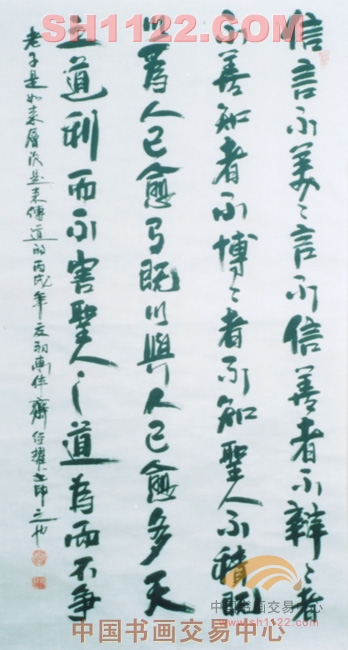 SH1122.COM
信言不美〻言不信善者不辯〻者
不善知者不博〻者不知聖人不積既
以為人己愈有既以與人己愈多天
之道利而不害聖人之道為而不争
老子是如来層次 来傳道的丙戌年
中国书画交易中心
www.sh1122.com
中国书画交易中心